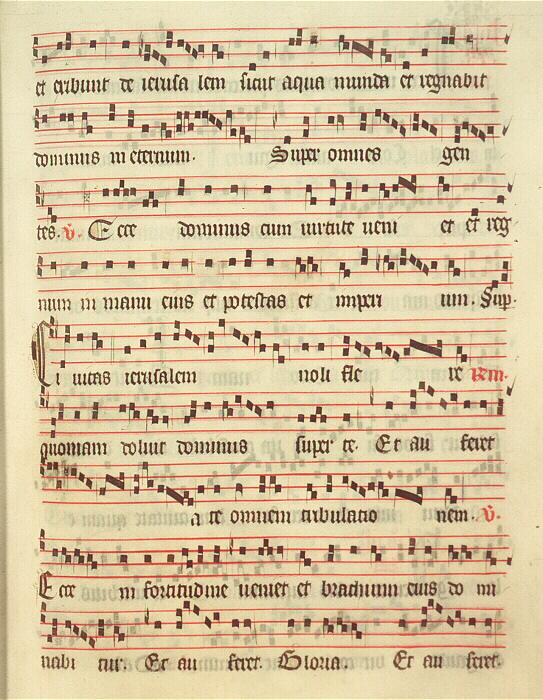 et exibunt de ierusa lem sicut aqua munda et regnabit
dominus in eternum. Super omnes gen
tes. v. Ecce dominus cum uirtute ueni et et reg
num in manu eius et potestas et imperi um. Sup.
Ci uitas ierusalem noli fle re rem.
quoniam doluit dominus super te. Et au feret
a te omnem tribulatio nem. v.
Ecce in fortitudine ueniet et brachium eius do mi
nabi tur. Et au feret. Gloria. Et au feret.